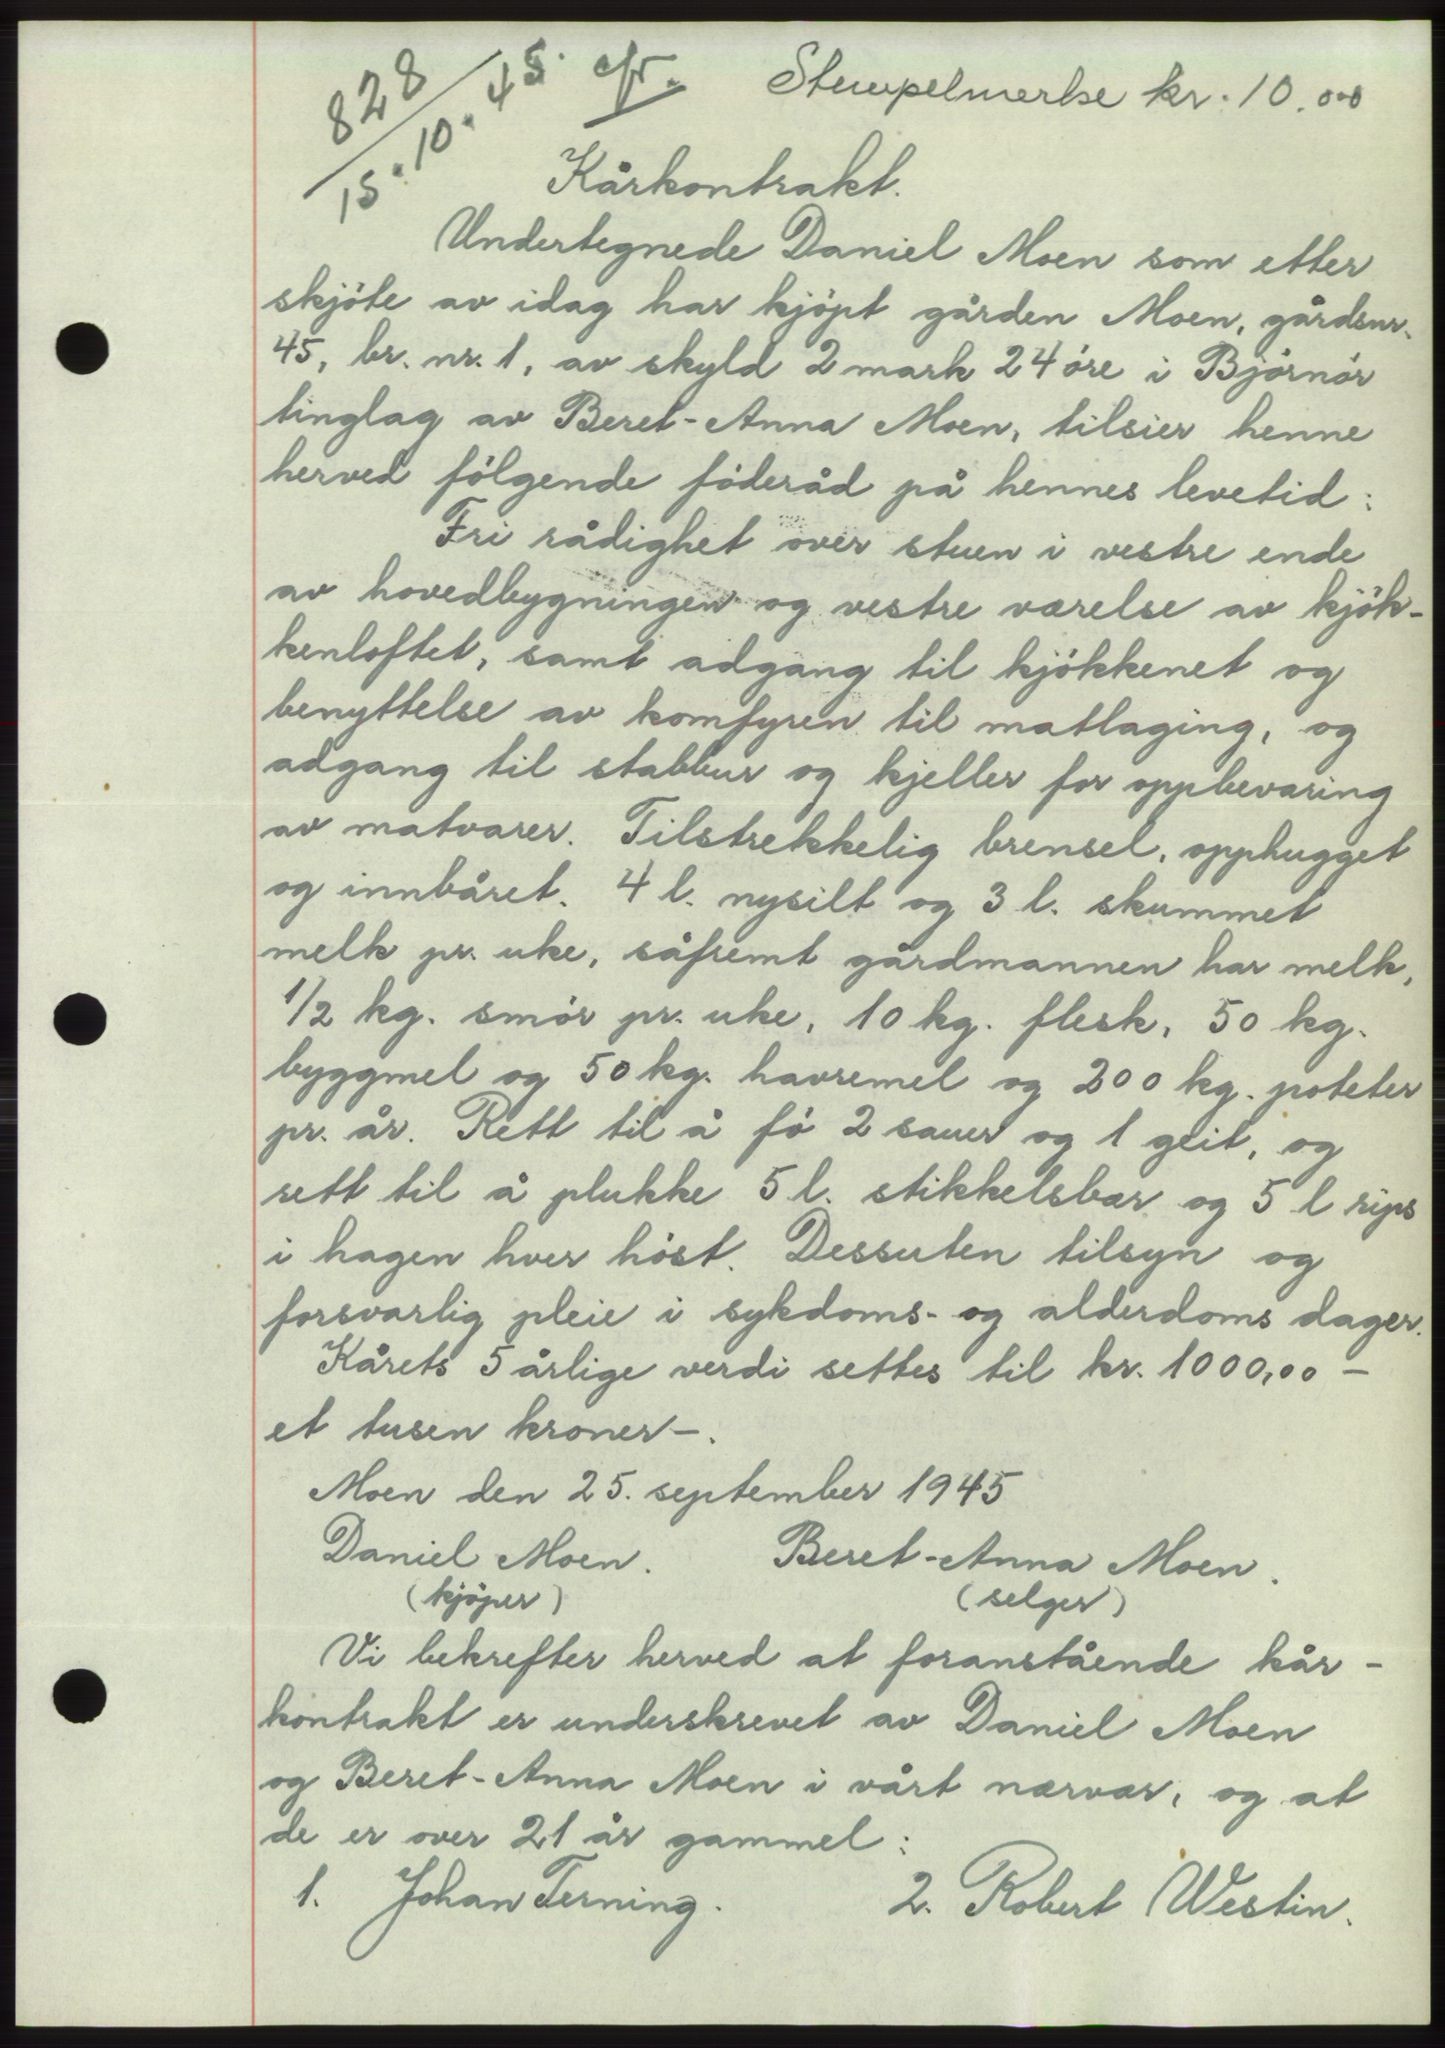 828
15.10.45. Stempelmerke kr. 10.00
Kårkontrakt.
Undertegnede Daniel Moen som etter
skjöte av idag har kjöpt gården Moen, gårdsnr.
45, br. nr. 1, av skyld 2 mark 24 öre i Björnör
tinglag av Beret-Anna Moen, tilsier henne
herved fölgende föderåd på hennes levetid:
Fri rådighet over stuen i vestre ende
av hovedbygningen og vestre værelse av kjök-
kenloftet, samt adgang til kjökkenet og
benyttelse av komfyren til matlaging, og
adgang til stabbur og kjeller for oppbevaring
av matvarer. Tilstrekkelig brensel, opphugget
og innbåret. 4 l. nysilt og 3 l. skummet
melk pr. uke, såfremt gårdmannen har melk,
1/2 kg. smör pr. uke, 10 kg. flesk, 50 kg.
byggmel og 50 kg. havremel og 200 kg. poteter
pr. år. Rett til å fö 2 sauer og 1 geit, og
rett til å plukke 5 l. stikkelsbær og 5 l rips
i hagen hver höst. Dessuten tilsyn og
forsvarlig pleie i sykdoms- og alderdoms dager.
Kårets 5 årlige verdi settes til kr. 1000,00 –
et tusen kroner –.
Moen den 25. september 1945
Daniel Moen. Beret-Anna Moen.
(kjöper) (selger)
Vi bekrefter herved at foranstående kår-
kontrakt er underskrevet av Daniel Moen
og Beret-Anna Moen i vårt nærvær, og at
de er over 21 år gammel:
1. Johan Terning. 2. Robert Westin.